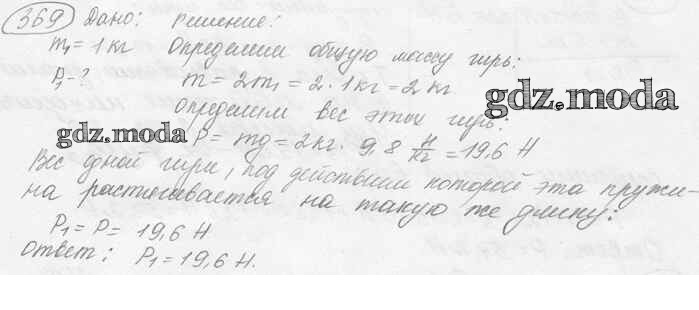 369 Дано: Решение:
m₁ = 1 кг Определим общую массу гирь:
P₁ - ? m = 2m₁ = 2 · 1 кг = 2 кг
Определим вес этих гирь:
gdz.moda
gdz.moda
P = mg = 2 кг · 9,8 Н/кг = 19,6 Н
Вес одной гири, под действием которой эта пружи-
на растягивается на такую же длину:
P₁ = P = 19,6 Н
Ответ: P₁ = 19,6 Н.